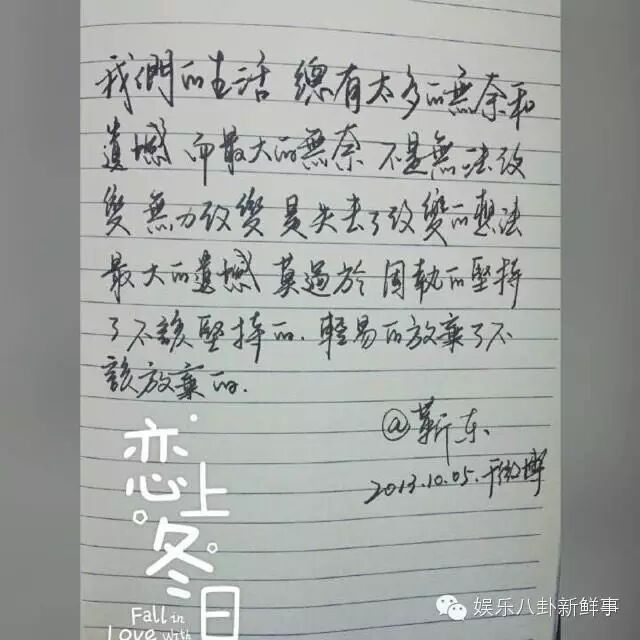 我們的生活 總有太多的無奈和
遺憾 而最大的無奈 不是無法改
變 無力改變 是失去了改變的想法
最大的遺憾 莫過於 固執的堅持
了不該堅持的. 輕易的放棄了不
該放棄的.
@靳东
2013.10.05.于微博
恋上冬日
Fall in
Love with
娱乐八卦新鲜事